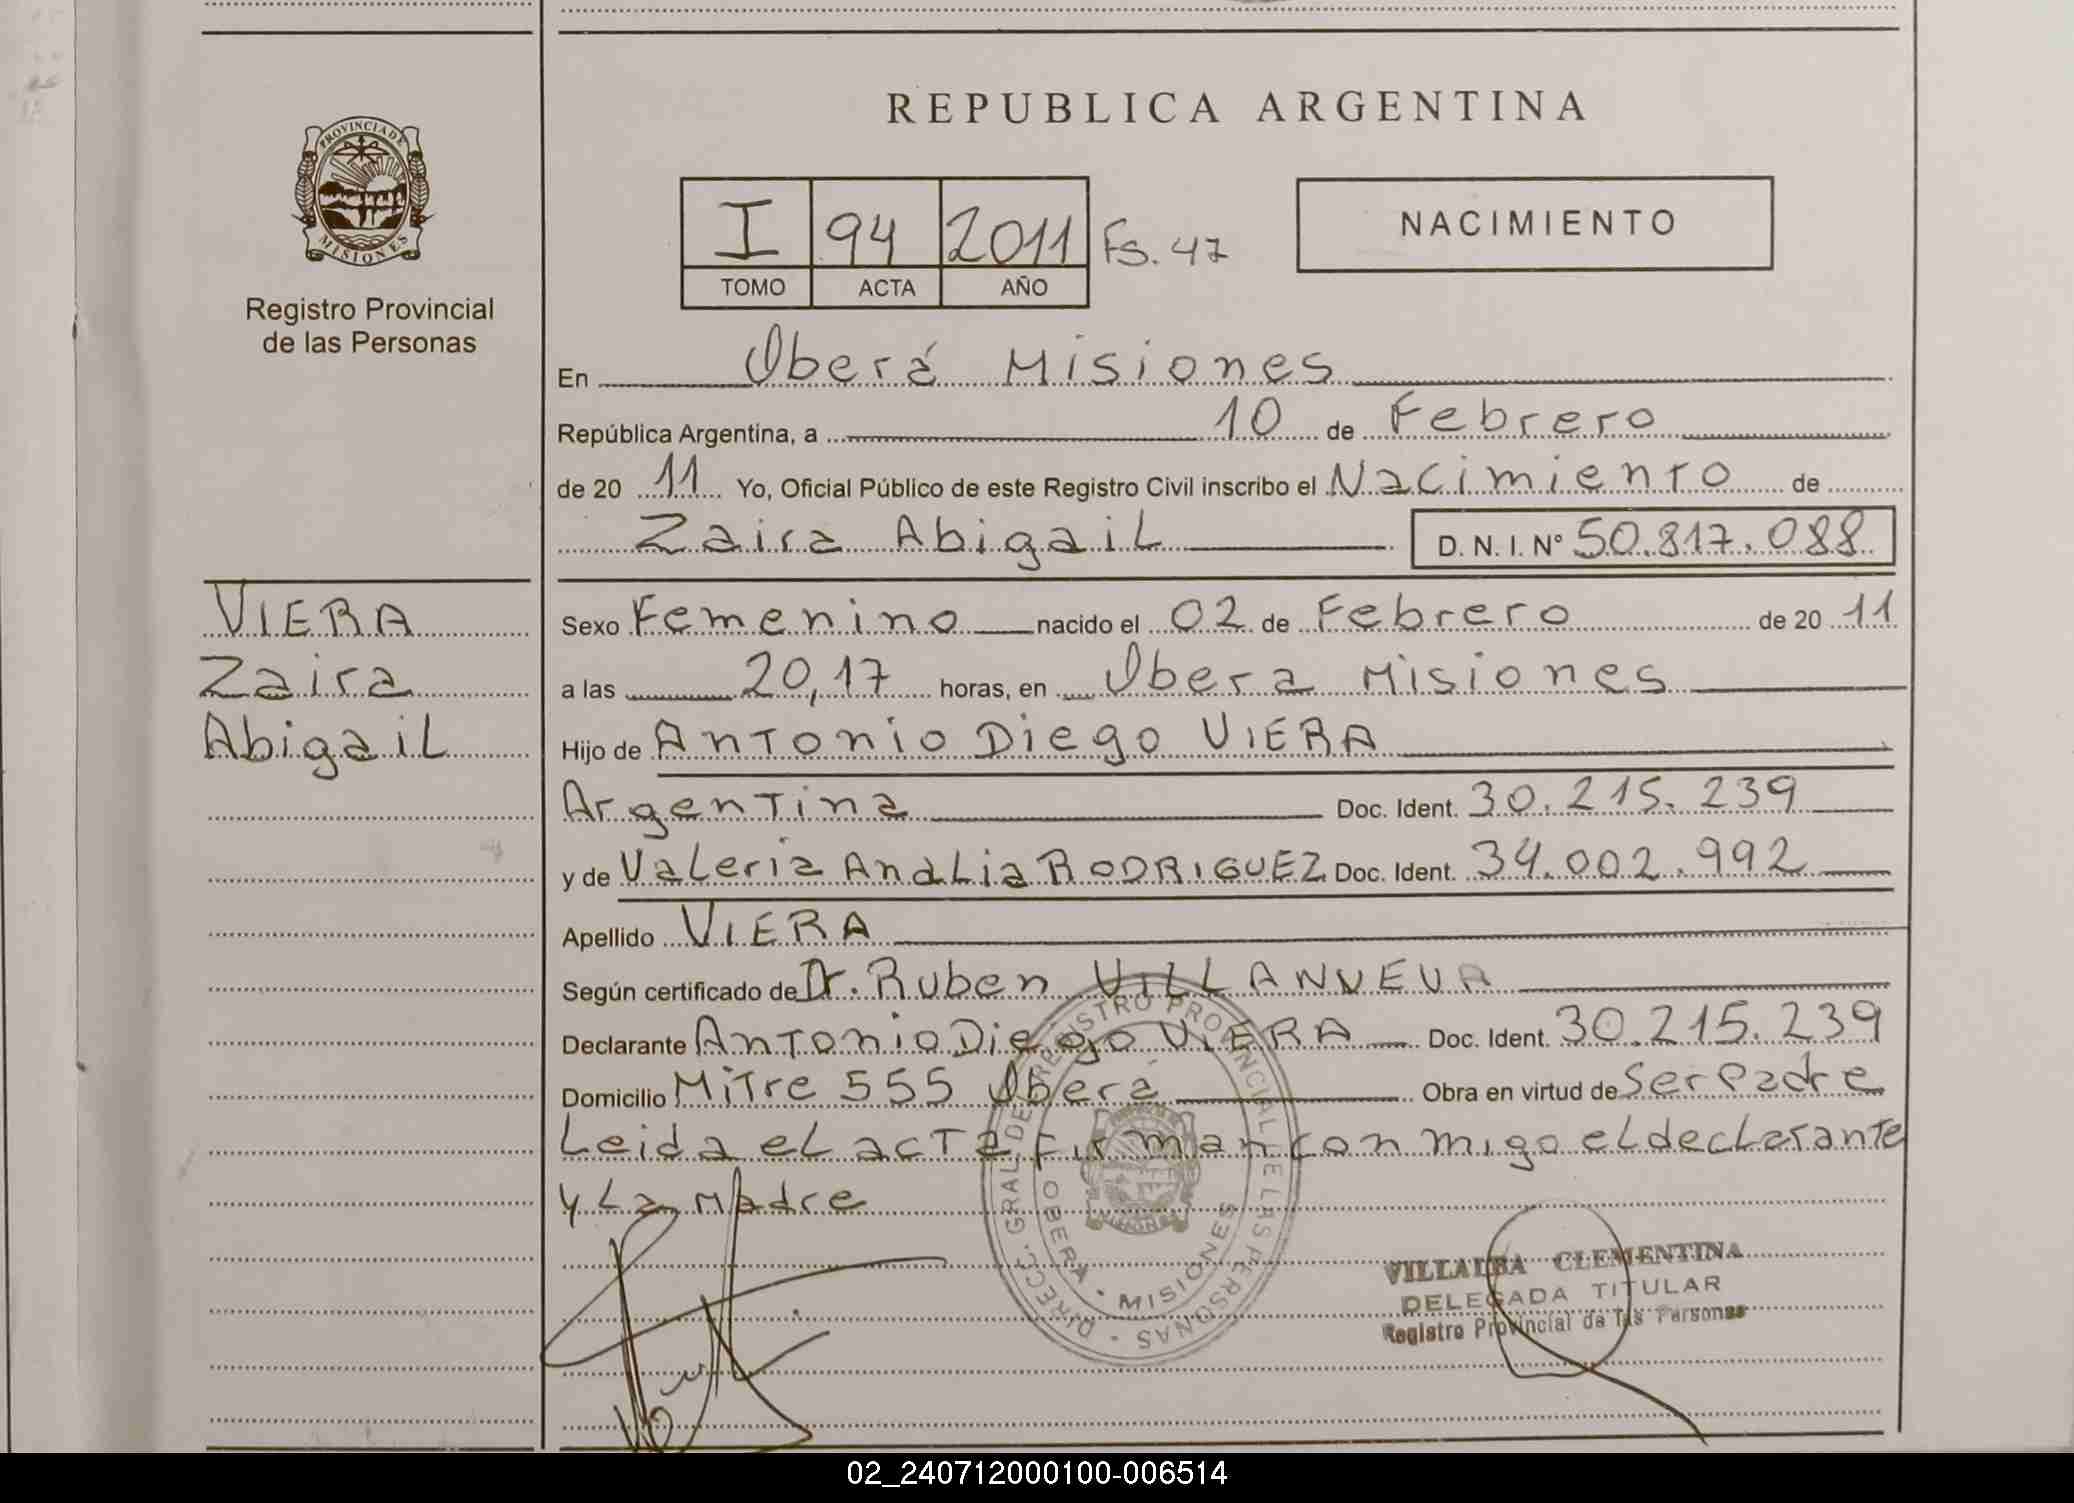 REPUBLICA ARGENTINA
PROVINCIA DE MISIONES
Registro Provincial
de las Personas
I 94 2011 Fs. 47
TOMO ACTA AÑO
NACIMIENTO
En Oberá Misiones
República Argentina, a 10 de Febrero
de 20 11 Yo, Oficial Público de este Registro Civil inscribo el Nacimiento de
Zaira Abigail D. N. I. Nº 50.817.088
VIERA
Zaira
Abigail
Sexo Femenino nacido el 02 de Febrero de 20 11
a las 20,17 horas, en Obera Misiones
Hijo de Antonio Diego VIERA
Argentina Doc. Ident. 30.215.239
y de Valeria Analia RODRIGUEZ Doc. Ident. 34.002.992
Apellido VIERA
Según certificado de Dr. Ruben VILLANUEVA
Declarante Antonio Diego VIERA Doc. Ident. 30.215.239
Domicilio Mitre 555 Oberá Obra en virtud de Ser Padre
Leida el acta firman con migo el declarante
y La Madre
DIRECC. GRAL. DE REGISTRO PROVINCIAL DE LAS PERSONAS
OBERA • MISIONES
VILLALBA CLEMENTINA
DELEGADA TITULAR
Registro Provincial de las Personas
02_240712000100-006514